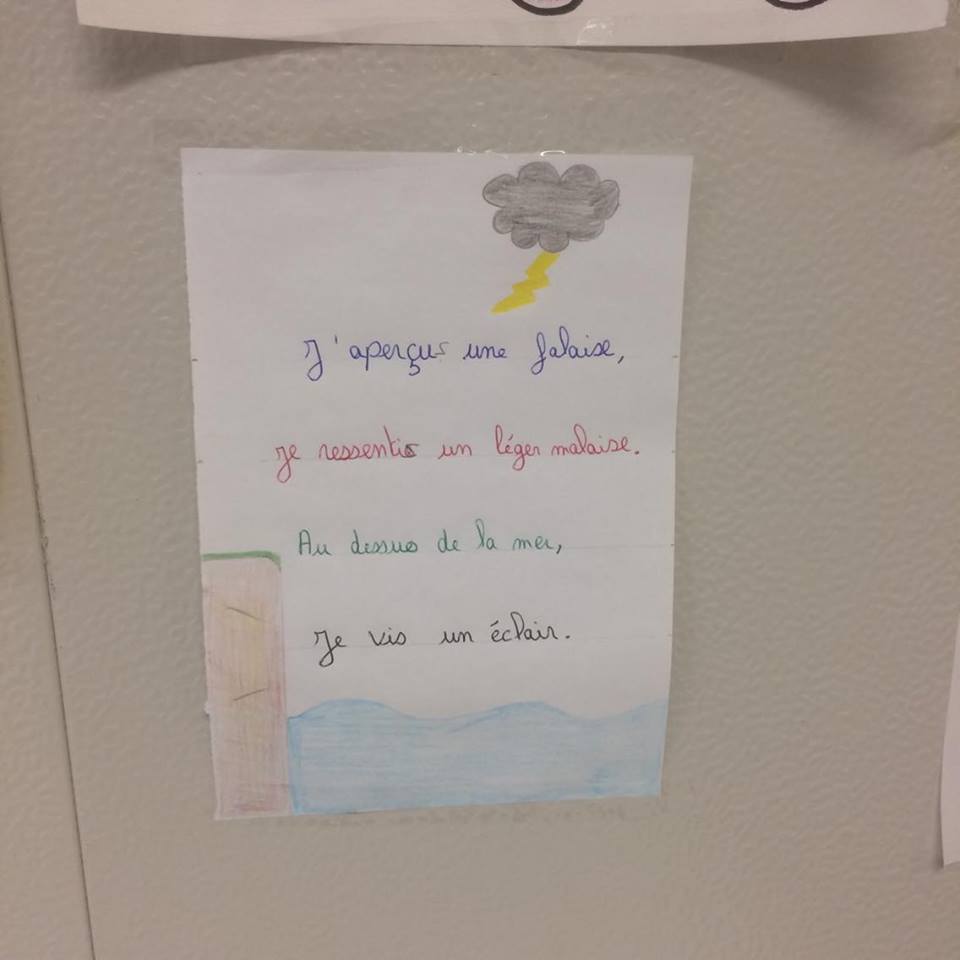 J'aperçus une falaise,
je ressentis un léger malaise.
Au dessus de la mer,
Je vis un éclair.